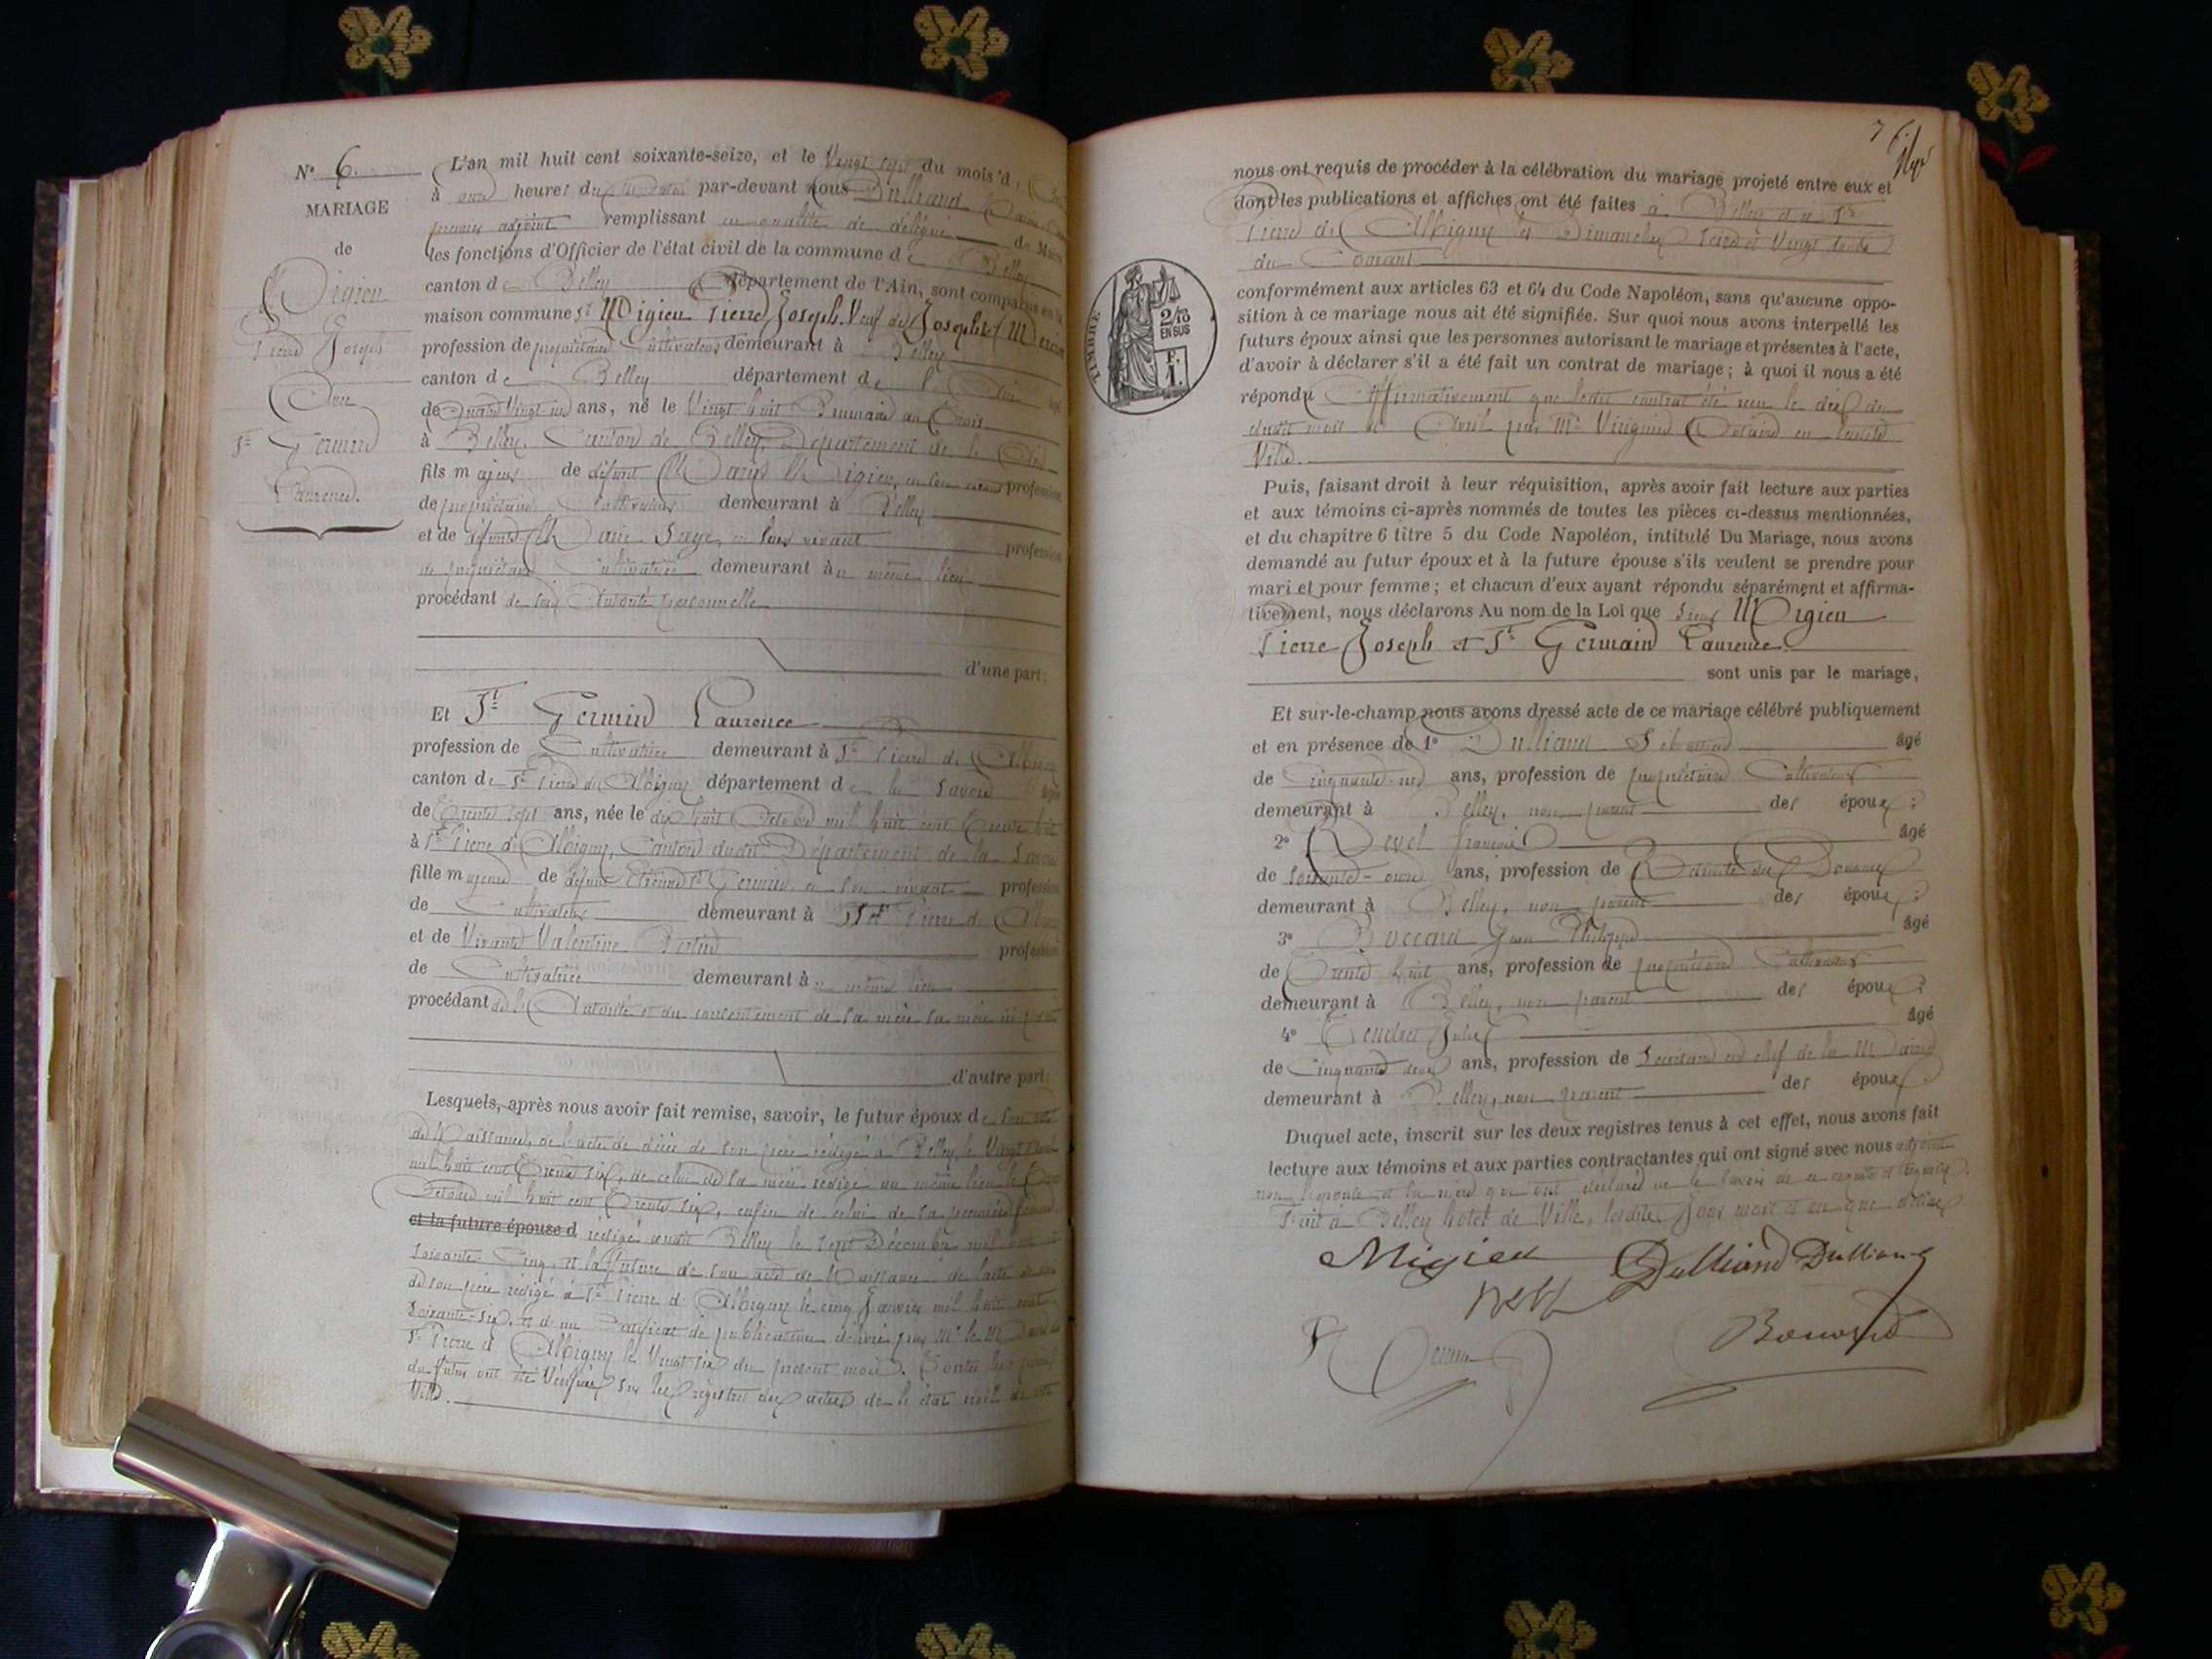 N° 6.
MARIAGE
de
Migieu
Pierre Joseph
Avec
St Germain
Laurence.
L'an mil huit cent soixante-seize, et le Vingt sept du mois d'
à onze heures du par-devant nous Dulliand
premier adjoint remplissant en qualité de délégué du Maire
les fonctions d'Officier de l'état civil de la commune de Belley
canton de Belley département de l'Ain, sont comparus en la
maison commune Sr Migieu Pierre Joseph. Veuf de Josephte
profession de propriétaire Cultivateur demeurant à Belley
canton de Belley département de l'Ain âgé
de Quatre Vingt un ans, né le Vingt huit Brumaire an Trois
à Belley, Canton de Belley, Département de l'Ain
fils majeur de défunt Migieu, en son vivant profession
de propriétaire Cultivateur demeurant à Belley
et de défunte Marie Sage, en son vivant profession
de propriétaire Cultivatrice demeurant au même lieu
procédant de son Autorité personnelle
d'une part;
Et St Germain Laurence
profession de Cultivatrice demeurant à St Pierre d'Albigny
canton de St Pierre d'Albigny département de la Savoie âgée
de Trente sept ans, née le dix huit Octobre mil huit cent trente huit
à St Pierre d'Albigny, Canton dudit Département de la Savoie
fille majeure de défunt Etienne St Germain en son vivant profession
de Cultivateur demeurant à St Pierre d'Albigny
et de Vivante Valentine profession
de Cultivatrice demeurant au même lieu
procédant de l'Autorité et du consentement de sa mère sa mère ici
d'autre part;
Lesquels, après nous avoir fait remise, savoir, le futur époux de son acte
de Naissance, de l'acte de décès de son père rédigé à Belley, le Vingt
mil huit cent Trente six, de celui de sa mère rédigé au même lieu le
Octobre mil huit cent Trente six, enfin de celui de sa première femme
et la future épouse d rédigé audit Belley le sept Décembre mil huit cent
soixante-Cinq, et la future de son acte de Naissance, de l'acte de
de son père rédigé à St Pierre d'Albigny le cinq Janvier mil huit cent
soixante-six, et d'un Certificat de publication délivré par Mr le Maire de
St Pierre d'Albigny le Vingt six du présent mois. Toutes les pièces
du futur ont été Vérifiées sur les registres des actes de l'état civil de cette
Ville.
76
nous ont requis de procéder à la célébration du mariage projeté entre eux et
dont les publications et affiches ont été faites à Belley et à St
Pierre d'Albigny les Dimanches Seize et Vingt trois
du Courant
TIMBRE
2/10
EN SUS
F.
1.
conformément aux articles 63 et 64 du Code Napoléon, sans qu'aucune oppo-
sition à ce mariage nous ait été signifiée. Sur quoi nous avons interpellé les
futurs époux ainsi que les personnes autorisant le mariage et présentes à l'acte,
d'avoir à déclarer s'il a été fait un contrat de mariage; à quoi il nous a été
répondu Affirmativement que ledit contrat été reçu le dix du
dudit mois d'Avril par Me Notaire en cette
Ville.
Puis, faisant droit à leur réquisition, après avoir fait lecture aux parties
et aux témoins ci-après nommés de toutes les pièces ci-dessus mentionnées,
et du chapitre 6 titre 5 du Code Napoléon, intitulé Du Mariage, nous avons
demandé au futur époux et à la future épouse s'ils veulent se prendre pour
mari et pour femme; et chacun d'eux ayant répondu séparément et affirma-
tivement, nous déclarons Au nom de la Loi que Sieur Migieu
Pierre Joseph et St Germain Laurence.
sont unis par le mariage,
Et sur-le-champ nous avons dressé acte de ce mariage célébré publiquement
et en présence de 1° Dulliand âgé
de Cinquante-un ans, profession de propriétaire Cultivateur
demeurant à Belley, non parent des époux;
2° Revel François âgé
de soixante-onze ans, profession de Retraité des Douanes
demeurant à Belley, non parent des époux;
3° Boccard Jean Philippe âgé
de Trente huit ans, profession de propriétaire Cultivateur
demeurant à Belley, non parent des époux;
4° Tendret Jules âgé
de Cinquante deux ans, profession de Secrétaire en chef de la Mairie
demeurant à Belley, non parent des époux.
Duquel acte, inscrit sur les deux registres tenus à cet effet, nous avons fait
lecture aux témoins et aux parties contractantes qui ont signé avec nous adjoint
non l'épouse et la mère qui ont déclaré ne le savoir de ce enquis et requises.
Fait à Belley hotel de Ville, lesdits Jour mois et an que dessus
Migieu Dulliand Dulliand